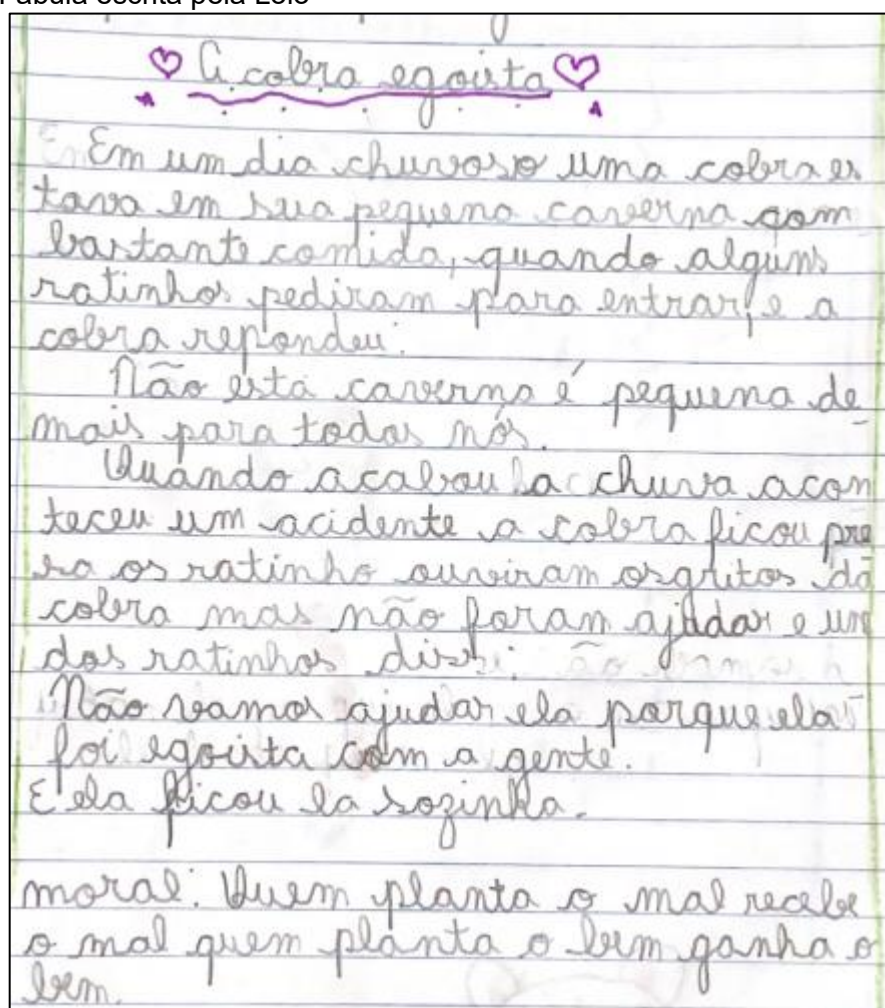 Fábula escrita pela Zoio
A cobra egoista
Em um dia chuvoso uma cobra es
tava em sua pequena caverna com
bastante comida, quando alguns
ratinhos pediram para entrar, e a
cobra repondeu:
Não esta caverna é pequena de
mais para todos nós.
Quando acabou a chuva acon
teceu um acidente a cobra ficou pre
sa os ratinho ouviram os gritos da
cobra mas não foram ajudar e um
dos ratinhos disse:
Não vamos ajudar ela porque ela
foi egoista com a gente.
E ela ficou la sozinha.
moral: Quem planta o mal recebe
o mal quem planta o bem ganha o
bem.